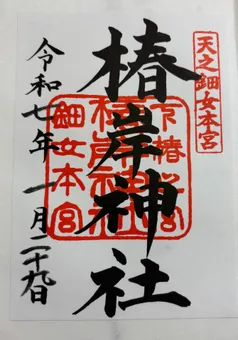 天之鈿女本宮
椿岸神社
鈿女本宮
令和七年一月二十九日